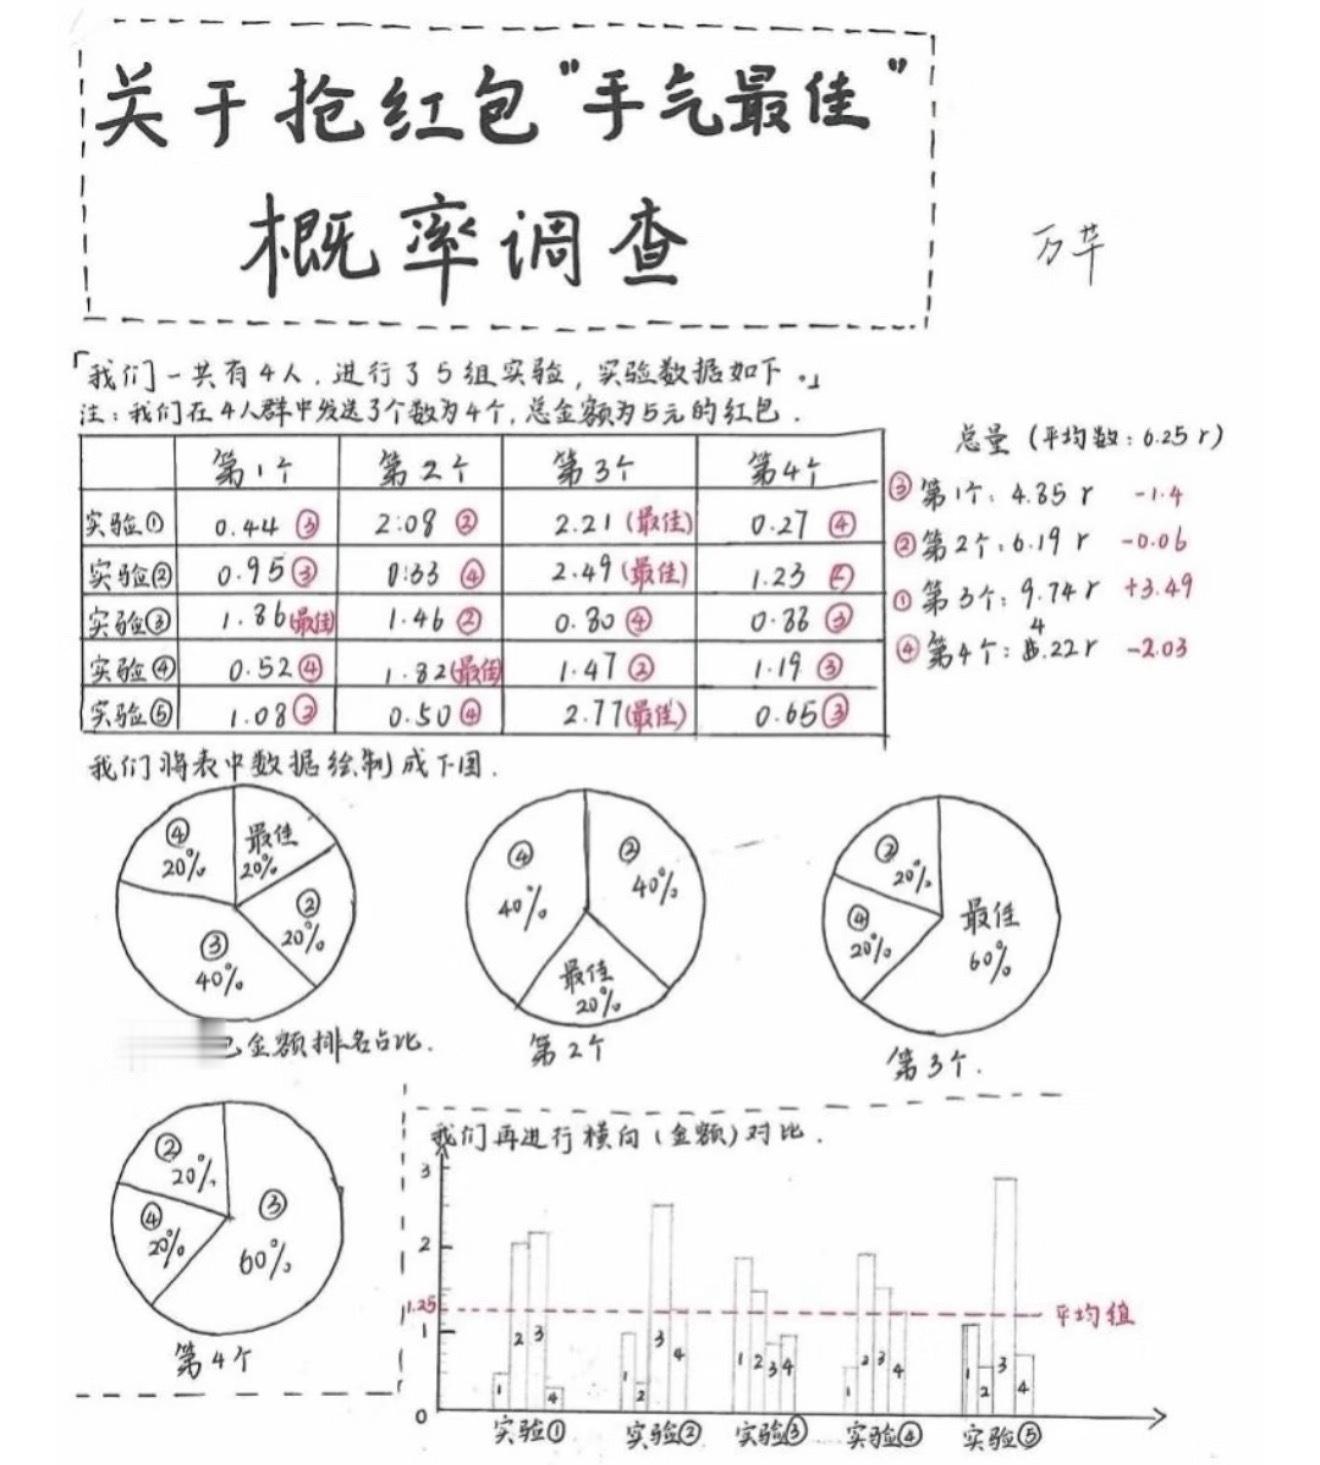 关于抢红包"手气最佳"
概率调查
万芊
「我们一共有4人，进行了5组实验，实验数据如下。」
注：我们在4人群中发送了个数为4个，总金额为5元的红包．
第1个 第2个 第3个 第4个
实验① 0.44 ③ 2.08 ② 2.21 (最佳) 0.27 ④
实验② 0.95 ③ 0.33 ④ 2.49 (最佳) 1.23 ②
实验③ 1.86 (最佳) 1.46 ② 0.80 ④ 0.88 ③
实验④ 0.52 ④ 1.82 (最佳) 1.47 ② 1.19 ③
实验⑤ 1.08 ② 0.50 ④ 2.77 (最佳) 0.65 ③
总量（平均数：6.25 r）
③ 第1个：4.85 r -1.4
② 第2个：6.19 r -0.06
① 第3个：9.74 r +3.49
④ 第4个：4.22 r -2.03
我们将表中数据绘制成下图．
④ 20%
最佳 20%
② 20%
③ 40%
金额排名占比．
④ 40%
② 40%
最佳 20%
第2个
② 20%
④ 20%
最佳 60%
第3个．
② 20%
④ 20%
③ 60%
第4个
我们再进行横向（金额）对比．
3
2
1.25
平均值
1
0
1 2 3 4
1 2 3 4
1 2 3 4
1 2 3 4
1 2 3 4
实验① 实验② 实验③ 实验④ 实验⑤